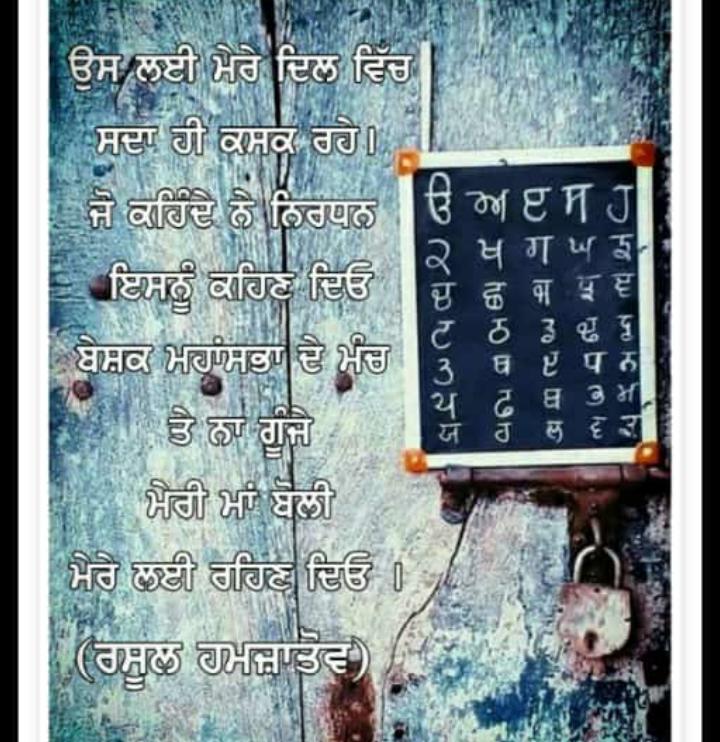 ਉਸ ਲਈ ਮੇਰੇ ਦਿਲ ਵਿੱਚ
ਸਦਾ ਹੀ ਕਸਕ ਰਹੇ।
ਜੋ ਕਹਿੰਦੇ ਨੇ ਨਿਰਧਨ
ਇਸਨੂੰ ਕਹਿਣ ਦਿਓ
ਬੇਸ਼ਕ ਮਹਾਂਸਭਾ ਦੇ ਮੰਚ
ਤੇ ਨਾ ਗੂੰਜੇ
ਮੇਰੀ ਮਾਂ ਬੋਲੀ
ਮੇਰੇ ਲਈ ਰਹਿਣ ਦਿਓ ।
(ਰਸੂਲ ਹਮਜ਼ਾਤੋਵ)
ੳ ਅ ੲ ਸ ਹ
ਕ ਖ ਗ ਘ ਙ
ਚ ਛ ਜ ਝ ਞ
ਟ ਠ ਡ ਢ ਣ
ਤ ਥ ਦ ਧ ਨ
ਪ ਫ ਬ ਭ ਮ
ਯ ਰ ਲ ਵ ੜ